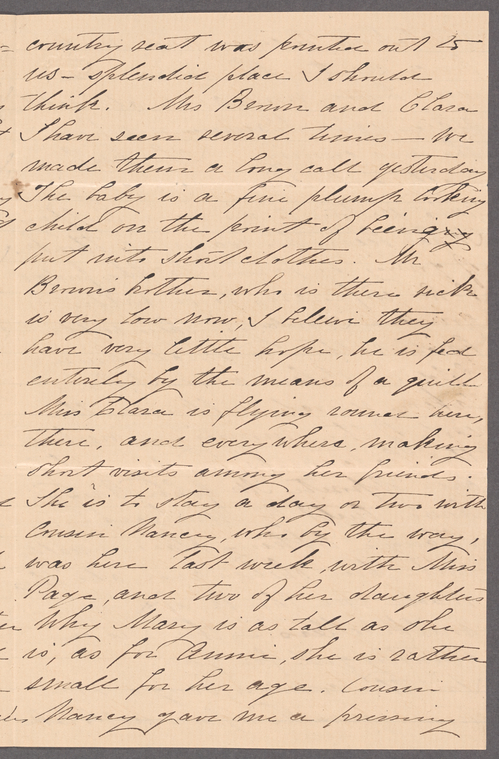 country seat was pointed out to
us - splendid place I should
think. Mrs Brown and Clara
I have seen several times - We
made them a long call yesterday
The baby is a fine plump looking
child on the point of being
put into short clothes. Mr
Brown's brother, who is there sick
is very low now, I believe they
have very little hope, he is fed
entirely by the means of a quill
Miss Clara is flying round here,
there, and everywhere, making
short visits among her friends.
She is to stay a day or two with
Cousin Nancy, who by the way,
was here last week, with Miss
Page, and two of her daughters
Why Mary is as tall as she
is, as for Annie, she is rather
small for her age. Cousin
Nancy gave me a pressing